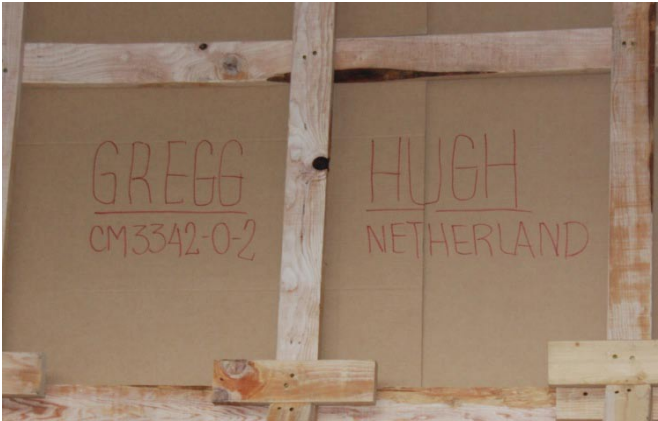 GREGG
CM3342-0-2
HUGH
NETHERLAND